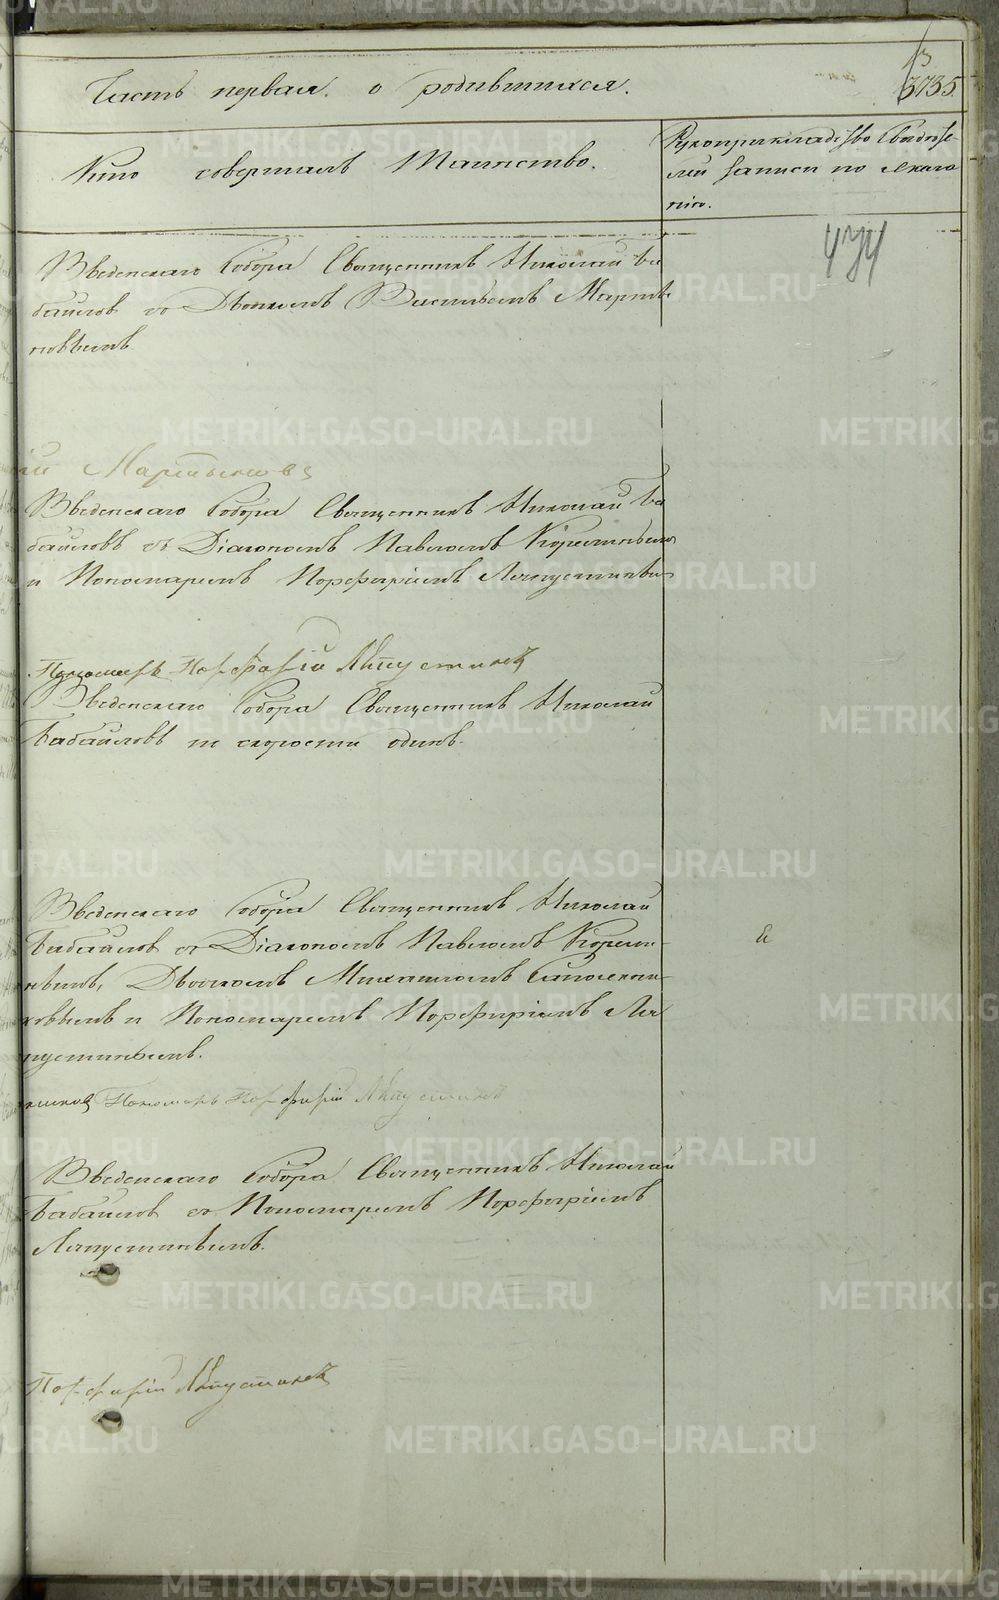 13
3735.
Часть первая. о родившихся.
Кто совершалъ Таинство.
Рукоприкладство Свидѣте-
лей записи по желанію
474
Введенскаго Собора Священникъ Николай Ба
байловъ съ Дьячкомъ Васильемъ Марты-
новымъ.
ій Мартыновъ
Введенскаго Собора Священникъ Николай Ба
байловъ съ Діакономъ Павломъ
и Пономаремъ Порфиріемъ Ляпустинымъ
Пономарь Порфирій Ляпустинъ
Введенскаго Собора Священникъ Николай
Бабайловъ по скорости одинъ.
Введенскаго Собора Священникъ Николай
Бабайловъ съ Діакономъ Павломъ
Дьячкомъ Михаиломъ
и Пономаремъ Порфиріемъ Ля
пустинымъ.
Пономарь Порфирій Ляпустинъ
Введенскаго Собора Священникъ Николай
Бабайловъ съ Пономаремъ Порфиріемъ
Ляпустинымъ.
Порфирій Ляпустинъ
METRIKI.GASO-URAL.RU